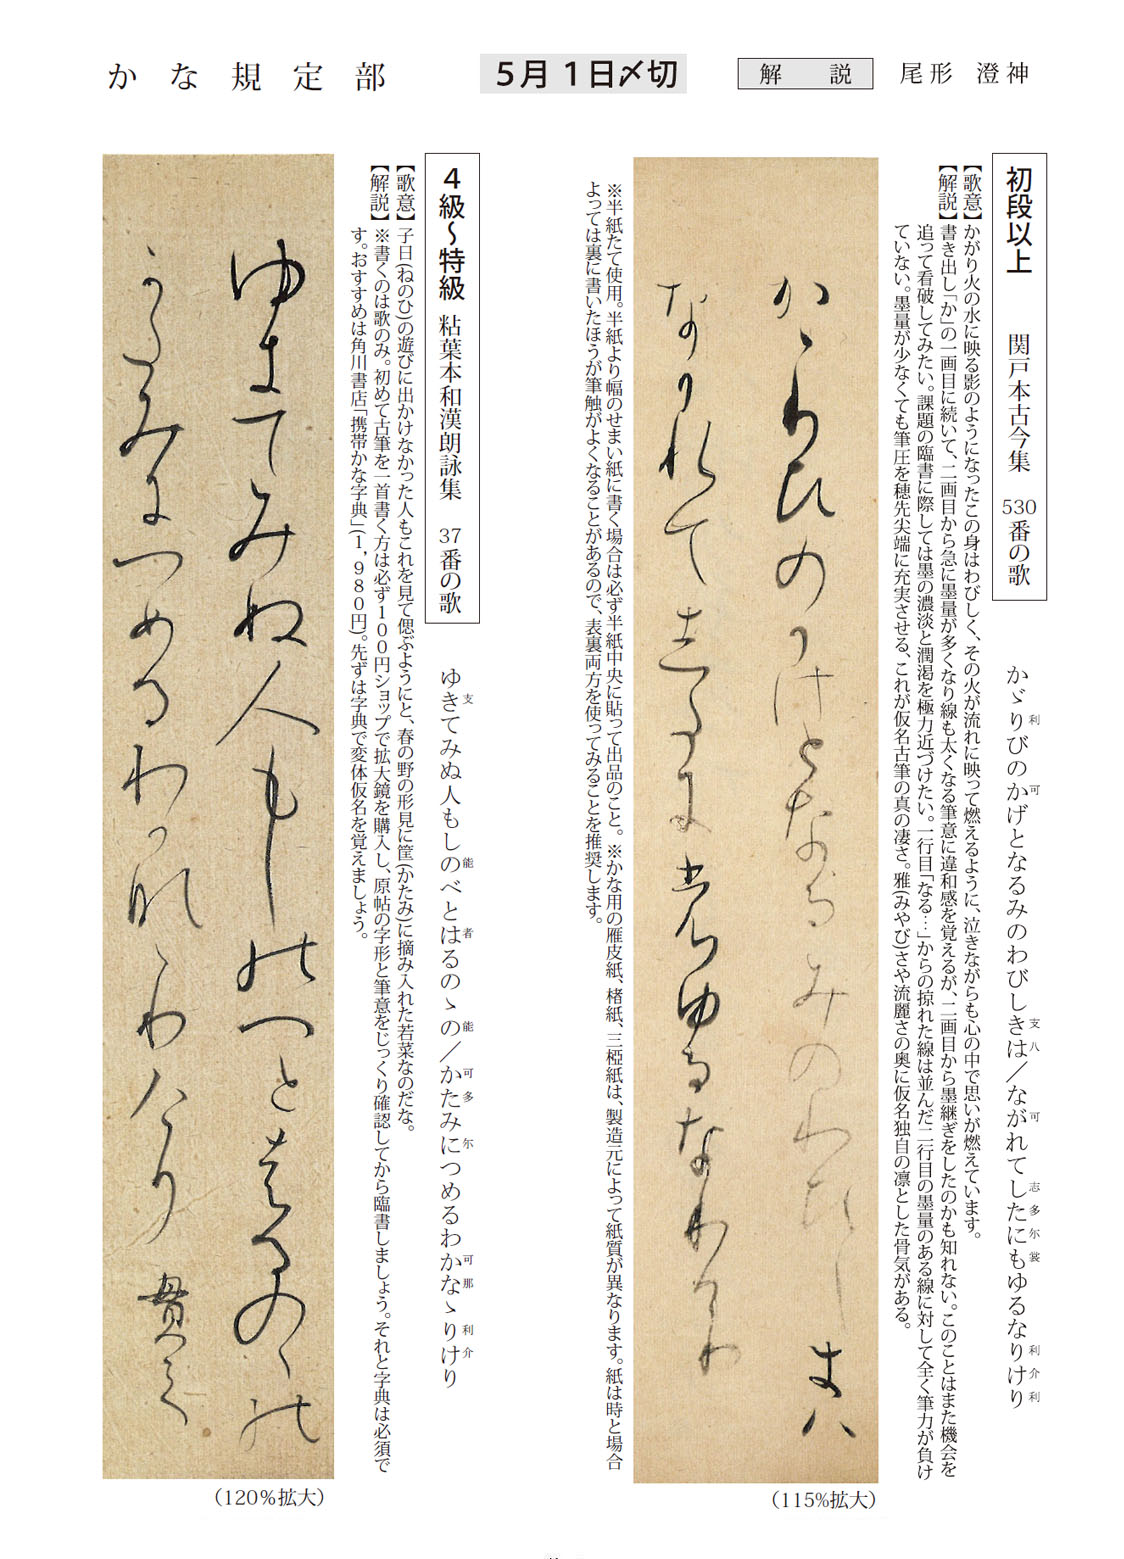 かな規定部
5月1日〆切
解説
尾形 澄神
初段以上 関戸本古今集 530番の歌
かゞりびのかげとなるみのわびしきは／ながれてしたにもゆるなりけり
利 可 支 八 可 志 多 尓 裳 利 介 利
【歌意】かがり火の水に映る影のようになったこの身はわびしく、その火が流れに映って燃えるように、泣きながらも心の中で思いが燃えています。
【解説】書き出し「か」の一画目に続いて、二画目から急に墨量が多くなり線も太くなる筆意に違和感を覚えるが、二画目から墨継ぎをしたのかも知れない。このことはまた機会を
追って看破してみたい。課題の臨書に際しては墨の濃淡と潤渇を極力近づけたい。一行目「なる…」からの掠れた線は並んだ二行目の墨量のある線に対して全く筆力が負け
ていない。墨量が少なくても筆圧を穂先尖端に充実させる、これが仮名古筆の真の凄さ。雅(みやび)さや流麗さの奥に仮名独自の凛とした骨気がある。
かゝりひのかけとなるみのわひしきは
なかれてしたにもゆるなりけり
（115%拡大）
※半紙たて使用。半紙より幅のせまい紙に書く場合は必ず半紙中央に貼って出品のこと。※かな用の雁皮紙、楮紙、三椏紙は、製造元によって紙質が異なります。紙は時と場合
よっては裏に書いたほうが筆触がよくなることがあるので、表裏両方を使ってみることを推奨します。
4級〜特級 粘葉本和漢朗詠集 37番の歌
ゆきてみぬ人もしのべとはるのゝの／かたみにつめるわかなゝりけり
支 能 者 能 可 多 尓 可 那 利 介
【歌意】子日(ねのひ)の遊びに出かけなかった人もこれを見て偲ぶようにと、春の野の形見に筐(かたみ)に摘み入れた若菜なのだな。
【解説】※書くのは歌のみ。初めて古筆を一首書く方は必ず100円ショップで拡大鏡を購入し、原帖の字形と筆意をじっくり確認してから臨書しましょう。それと字典は必須で
す。おすすめは角川書店「携帯かな字典」(1,980円)。先ずは字典で変体仮名を覚えましょう。
ゆきてみぬ人もしのへとはるのゝの
かたみにつめるわかなゝりけり 貫之
（120%拡大）